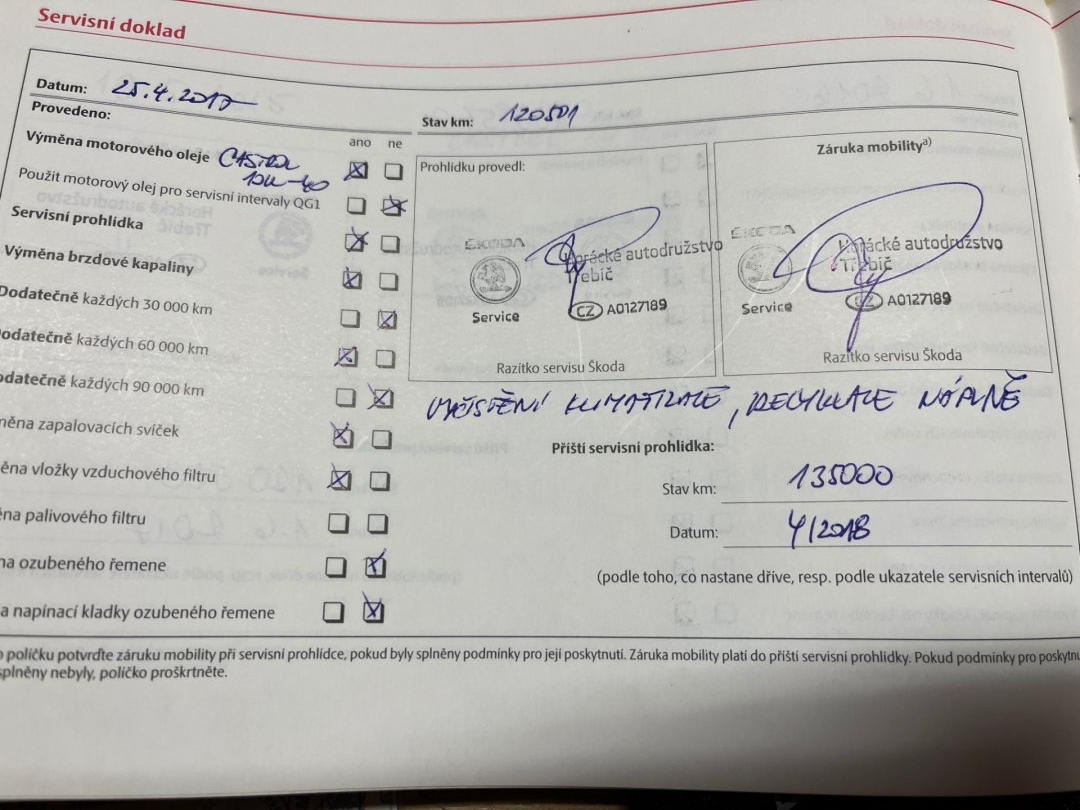 Servisní doklad
Datum: 25.4.2017
Stav km: 120501
Provedeno:
ano ne
Výměna motorového oleje CASTROL
10W-40
Použit motorový olej pro servisní intervaly QG1
Servisní prohlídka
Výměna brzdové kapaliny
Dodatečně každých 30 000 km
odatečně každých 60 000 km
odatečně každých 90 000 km
něna zapalovacích svíček
ěna vložky vzduchového filtru
ěna palivového filtru
na ozubeného řemene
a napínací kladky ozubeného řemene
Prohlídku provedl:
ŠKODA
Horácké autodružstvo
Třebíč
Service
CZ A0127189
Razítko servisu Škoda
Záruka mobility a)
ŠKODA
Horácké autodružstvo
Třebíč
Service
CZ A0127189
Razítko servisu Škoda
VYČIŠTĚNÍ KLIMATIZACE, RECYKLACE NÁPLNĚ
Příští servisní prohlídka:
Stav km: 135000
Datum: 4/2018
(podle toho, co nastane dříve, resp. podle ukazatele servisních intervalů)
o políčku potvrďte záruku mobility při servisní prohlídce, pokud byly splněny podmínky pro její poskytnutí. Záruka mobility platí do příští servisní prohlídky. Pokud podmínky pro poskytnu
splněny nebyly, políčko proškrtněte.